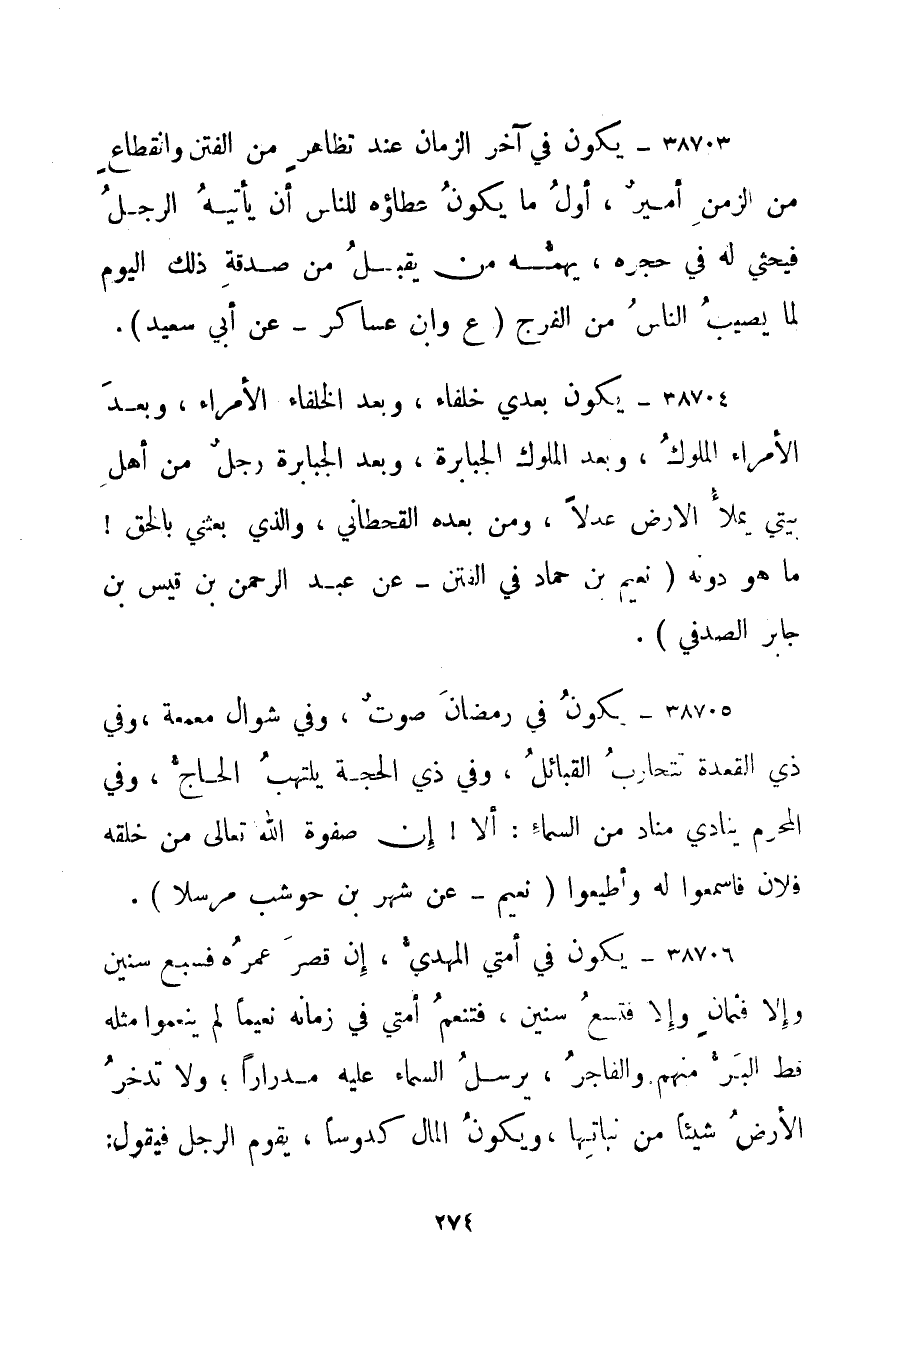 ٣٨٧٠٣ ـ يكون في آخر الزمان عند تظاهرٍ من الفتن وانقطاعٍ
من الزمنِ أميرٌ ، أولُ ما يكونُ عطاؤه للناس أن يأتيهُ الرجلُ
فيحثي له في حجره ، يهمُّه من يقبلُ من صدقةِ ذلك اليوم
لما يصيبُ الناسُ من الفرج ( ع وابن عساكر ـ عن أبي سعيد ) .
٣٨٧٠٤ ـ يكون بعدي خلفاء ، وبعد الخلفاء الأمراء ، وبعدَ
الأمراء الملوكُ ، وبعد الملوك الجبابرة ، وبعد الجبابرة رجلٌ من أهلِ
بيتي يملأُ الارض عدلاً ، ومن بعده القحطاني ، والذي بعثني بالحق !
ما هو دونه ( نعيم بن حماد في الفتن ـ عن عبد الرحمن بن قيس بن
جابر الصدفي ) .
٣٨٧٠٥ ـ يكونُ في رمضانَ صوتٌ ، وفي شوال معمعة ، وفي
ذي القعدة تتحاربُ القبائلُ ، وفي ذي الحجة يلتهبُ الحاجُّ ، وفي
المحرم ينادي مناد من السماءِ : ألا ! إن صفوة الله تعالى من خلقه
فلان فاسمعوا له وأطيعوا ( نعيم ـ عن شهر بن حوشب مرسلا ) .
٣٨٧٠٦ ـ يكون في أمتي المهديُّ ، إن قصرَ عمرُه فسبع سنين
وإلا فثمانٍ وإلا فتسعُ سنين ، فتنعمُ أمتي في زمانه نعيماً لم ينعموا مثله
قط البَرُّ منهم والفاجرُ ، يرسلُ السماء عليه مدراراً ، ولا تدخرُ
الأرضُ شيئاً من نباتِها ، ويكونُ المال كدوساً ، يقوم الرجل فيقول :
٢٧٤